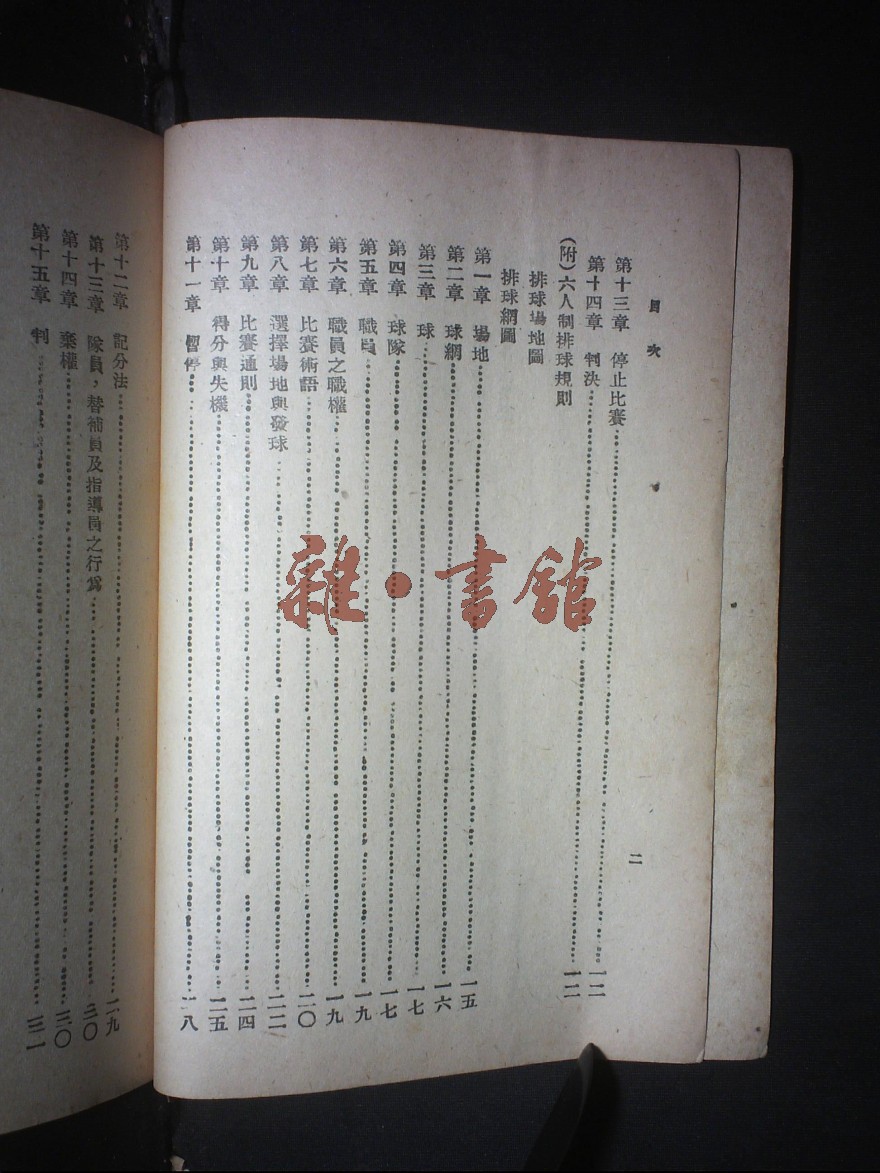 目次
二
第十三章 停止比賽 一二
第十四章 判決 一二
(附)六人制排球規則
排球場地圖
排球網圖
第一章 場地 一五
第二章 球網 一六
第三章 球 一七
第四章 球隊 一七
第五章 職員 一九
第六章 職員之職權 一九
第七章 比賽術語 二〇
第八章 選擇場地與發球 二二
第九章 比賽通則 二四
第十章 得分與失機 二五
第十一章 暫停 二八
第十二章 記分法 二九
第十三章 隊員,替補員及指導員之行為 三〇
第十四章 棄權 三〇
第十五章 判 三一
雜·書館